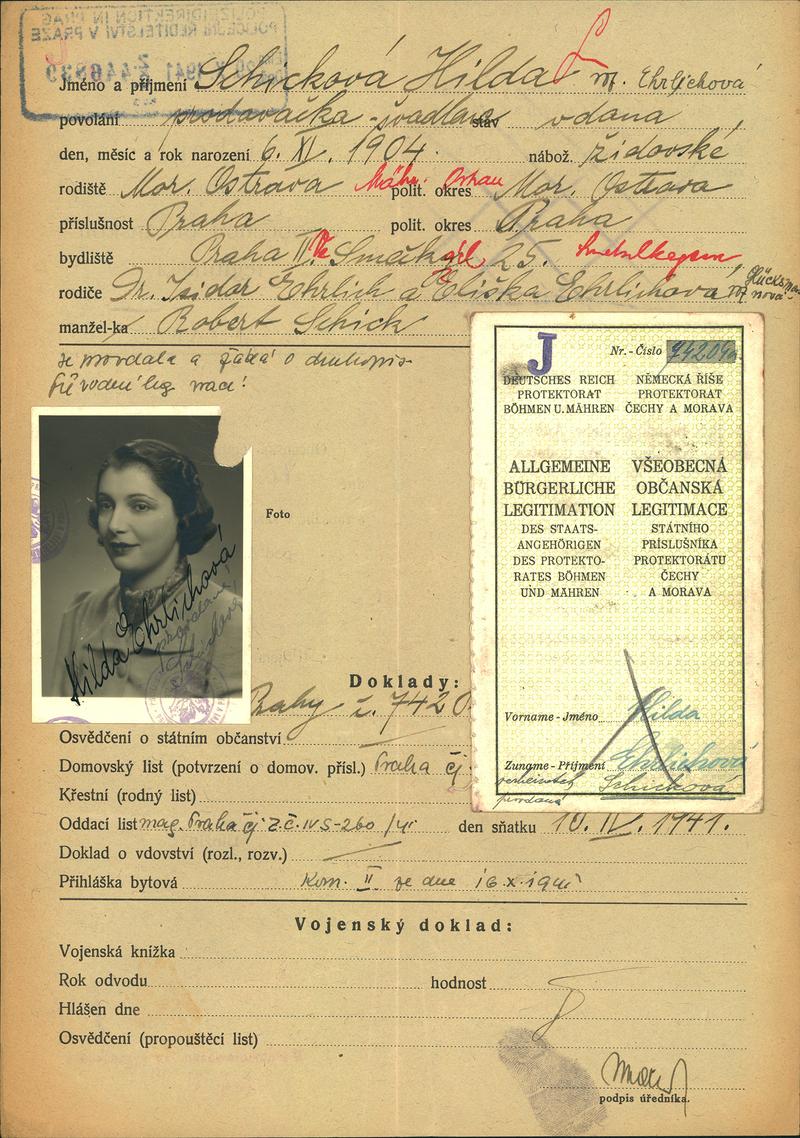 POLICEJNÍ ŘEDITELSTVÍ V PRAZE
1941
Jméno a příjmení Schicková Hilda r. Ehrlichová
povolání prodavačka - švadlena stav vdaná
den, měsíc a rok narození 6. XI. 1904. nábož. židovské
rodiště Mor. Ostrava Mähr. Ostrau polit. okres Mor. Ostrava
příslušnost Praha polit. okres Praha
bydliště Praha II. Smečk 25.
rodiče Dr. Isidor Ehrlich a Eliška Ehrlichová
manžel-ka Robert Schick
se provdala a žádá o druhopis
Foto
Hilda Ehrlichová
provdaná
Schicková
J
Nr. - Číslo
DEUTSCHES REICH NĚMECKÁ ŘÍŠE
PROTEKTORAT PROTEKTORÁT
BÖHMEN U. MÄHREN ČECHY A MORAVA
ALLGEMEINE VŠEOBECNÁ
BÜRGERLICHE OBČANSKÁ
LEGITIMATION LEGITIMACE
DES STAATS- STÁTNÍHO
ANGEHÖRIGEN PŘÍSLUŠNÍKA
DES PROTEKTO- PROTEKTORÁTU
RATES BÖHMEN ČECHY
UND MÄHREN A MORAVA
Vorname - Jméno Hilda
Zuname - Příjmení Ehrlichová
Schicková
Doklady:
Prahy č. 7420
Osvědčení o státním občanství
Domovský list (potvrzení o domov. přísl.) Praha čj
Křestní (rodný list)
Oddací list mag. Praha čj Z.č. IV S-260/41 den sňatku 10. IV. 1941.
Doklad o vdovství (rozl., rozv.)
Přihláška bytová Kom. II ze dne 16.X.1941
Vojenský doklad:
Vojenská knížka
Rok odvodu hodnost
Hlášen dne
Osvědčení (propouštěcí list)
podpis úředníka.